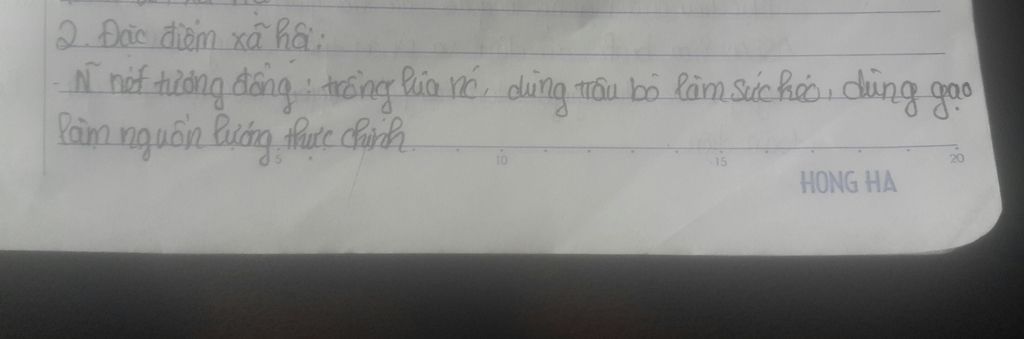 2. Đặc điểm xã hội:
- N̄ nét tương đồng: trồng lúa nc, dùng trâu bò làm sức kéo, dùng gạo
làm nguồn lương thực chính
5 10 15 20
HONG HA